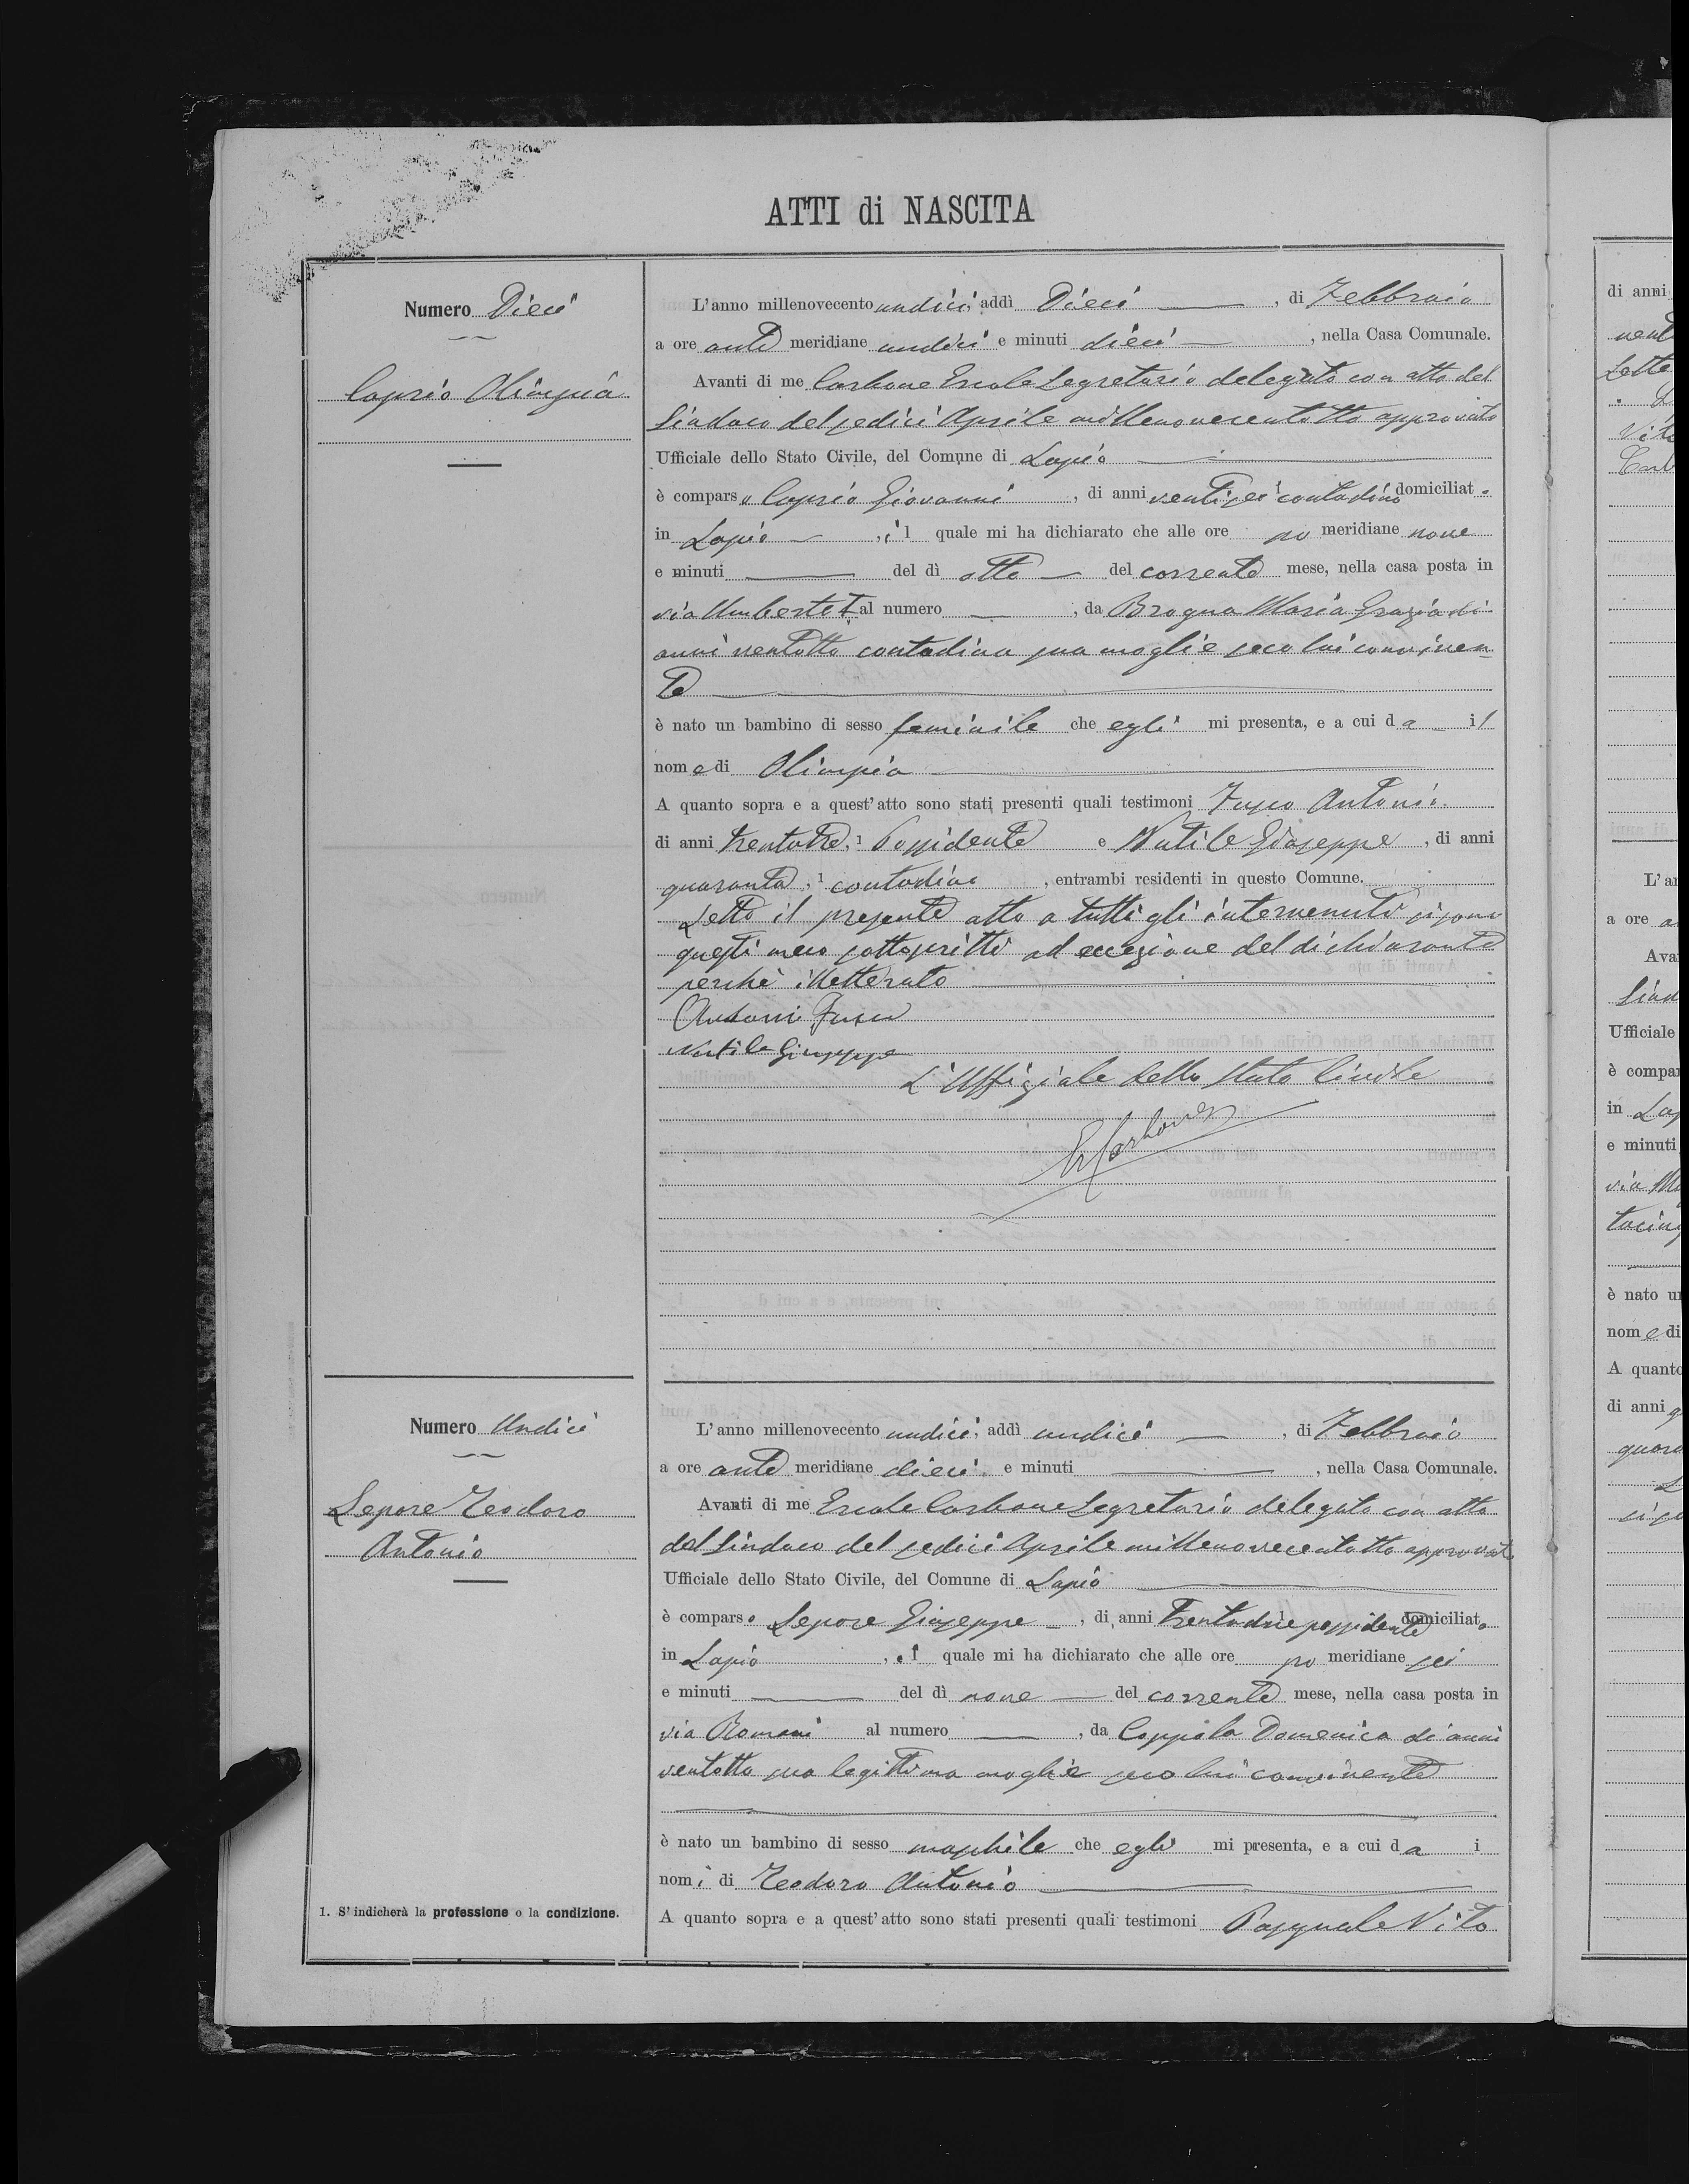 ATTI di NASCITA
Numero Dieci
Caprio Olimpia
L'anno millenovecento undici, addì Dieci, di Febbraio
a ore ante meridiane undici e minuti dieci, nella Casa Comunale.
Avanti di me Carbone Ercole Segretario delegato con atto del
Sindaco del sedici Aprile millenovecentotto approvato
Ufficiale dello Stato Civile, del Comune di Lapio
è comparso Caprio Giovanni, di anni ventisei 1 contadino domiciliato
in Lapio, il quale mi ha dichiarato che alle ore po meridiane nove
e minuti del dì otto del corrente mese, nella casa posta in
via Umberto I al numero , da Brogna Maria Grazia di
anni ventotto contadina sua moglie seco lui conviven=
te
è nato un bambino di sesso feminile che egli mi presenta, e a cui da il
nome di Olimpia
A quanto sopra e a quest'atto sono stati presenti quali testimoni Fusco Antonio
di anni trentatre, 1 Possidente e Nutile Giuseppe, di anni
quaranta, 1 contadino, entrambi residenti in questo Comune.
Letto il presente atto a tutti gli intervenuti si sono
questi meco sottoscritti ad eccezione del dichiarante
perchè illetterato
Antonio Fusco
Nutile Giuseppe
L'Uffiziale dello Stato Civile
E Carbone
Numero Undici
Lepore Teodoro
Antonio
L'anno millenovecento undici, addì undici, di Febbraio
a ore ante meridiane dieci e minuti , nella Casa Comunale.
Avanti di me Ercole Carbone Segretario delegato con atto
del Sindaco del sedici Aprile millenovecentotto approvato
Ufficiale dello Stato Civile, del Comune di Lapio
è comparso Lepore Giuseppe, di anni trentadue 1 possidente domiciliato
in Lapio, il quale mi ha dichiarato che alle ore po meridiane sei
e minuti del dì nove del corrente mese, nella casa posta in
via Romani al numero , da Coppola Domenica di anni
ventotto sua legittima moglie seco lui convivente
è nato un bambino di sesso maschile che egli mi presenta, e a cui da i
nomi di Teodoro Antonio
A quanto sopra e a quest'atto sono stati presenti quali testimoni Pasquale Vito
1. S'indicherà la professione o la condizione.
di anni
Lette
L'an
a ore
Ava
Sind
Ufficiale
è compar
in Lap
e minuti
via
è nato un
nome di
A quanto
di anni